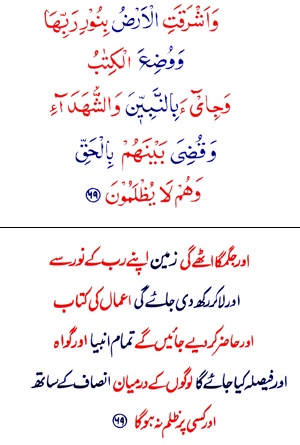 وَاَشْرَقَتِ الْاَرْضُ بِنُوْرِ رَبِّهَا
وَوُضِعَ الْكِتٰبُ
وَجِایْٓءَ بِالنَّبِیّٖنَ وَالشُّهَدَآءِ
وَقُضِیَ بَیْنَهُمْ بِالْحَقِّ
وَهُمْ لَا یُظْلَمُوْنَ ﴿۶۹﴾
اور جگمگا اٹھے گی زمین اپنے رب کے نور سے
اور لا کر رکھ دی جائے گی اعمال کی کتاب
اور حاضر کر دیے جائیں گے تمام انبیا اور گواہ
اور فیصلہ کیا جائے گا لوگوں کے درمیان انصاف کے ساتھ
اور کسی پر ظلم نہ ہو گا ﴿۶۹﴾